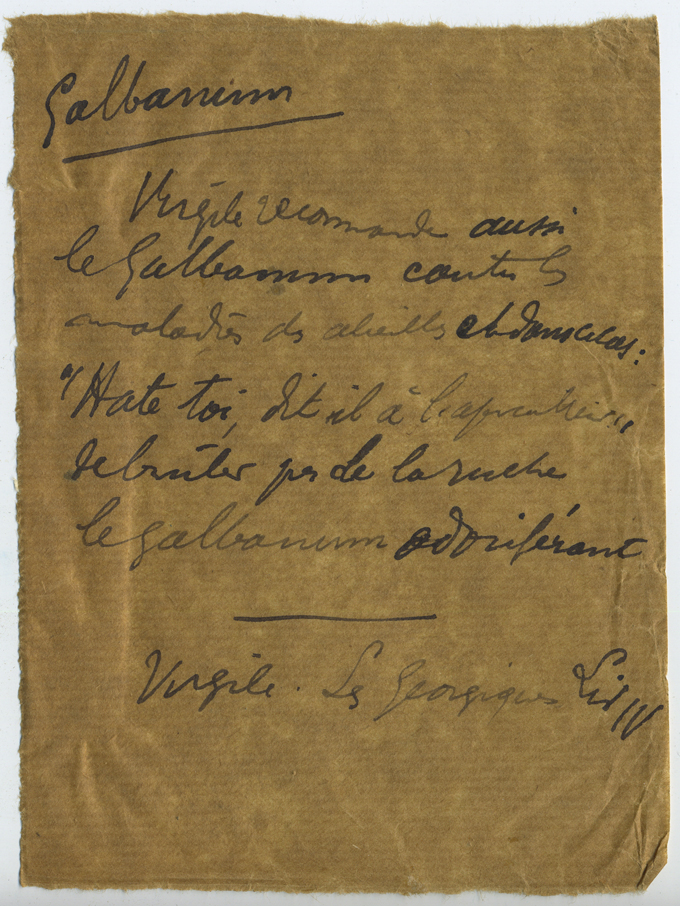 Galbanum
Virgile recommande aussi
le Galbanum contre les
maladies des abeilles
"Hate toi, dit il à l'apiculteur
de brûler près de la ruche
le galbanum odoriférant
Virgile. Les Georgiques Lib IV